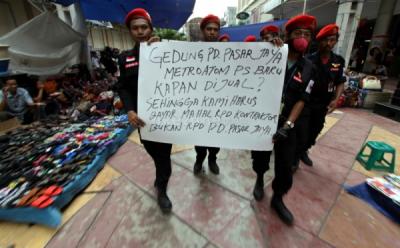 GEDUNG PD. PASAR JAYA
METRO ATOM PS BARU
KAPAN DI JUAL?
SEHINGGA KAMI HARUS
BAYAR MAHAL KPD KONTRAKTOR
BUKAN KPD P.D. PASAR JAYA